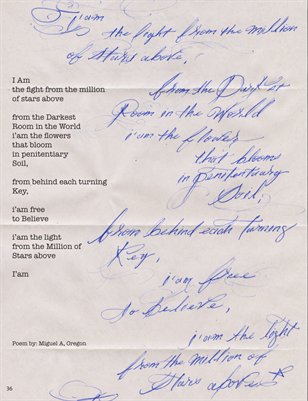 I Am
the fight from the million
of stars above
from the Darkest
Room in the World
i'am the flowers
that bloom
in penitentiary
Soil,
from behind each turning
Key,
i'am free
to Believe
i'am the light
from the Million of
Stars above
I'am
Poem by: Miguel A, Oregon
36
i'am
the light from the million
of stars above,
from the Darkest
Room in the World
i'am the flowers
that bloom
in penitentiary
Soil,
from behind each turning
Key,
i'am free
to Believe,
i'am the light
from the million of
Stars above